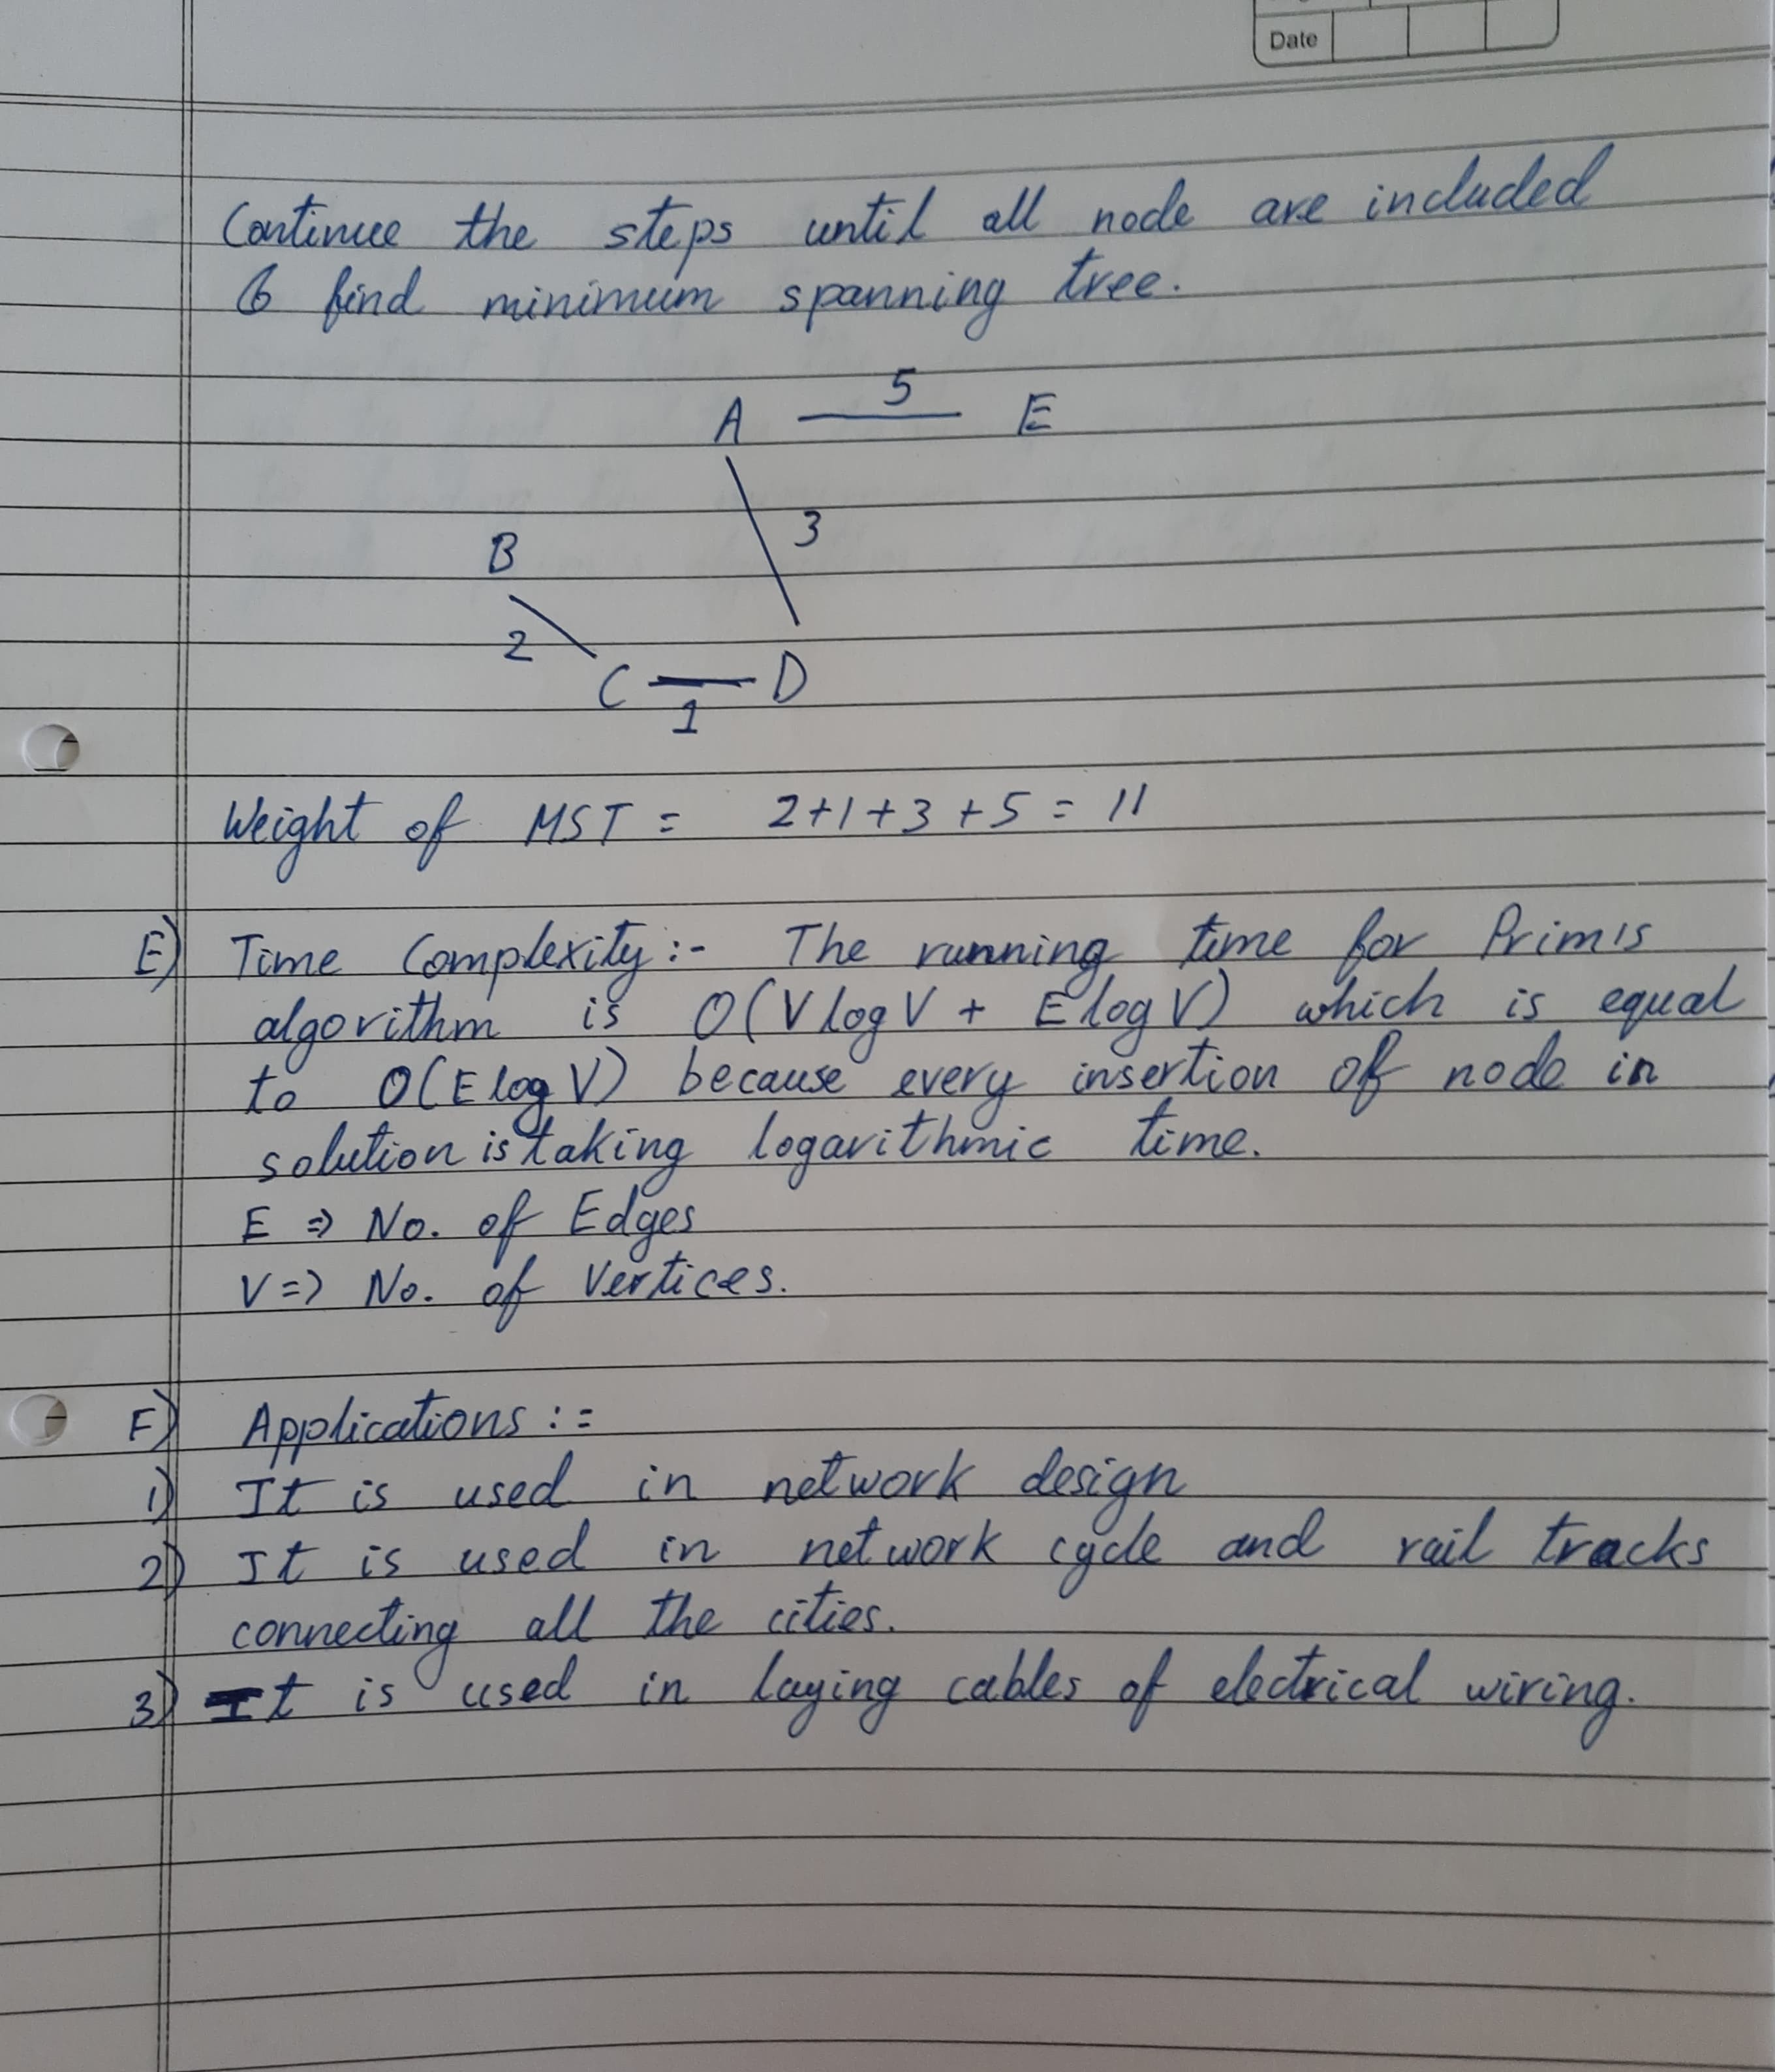 Date
Continue the steps until all node are included
& find minimum spanning tree.
A 5 E
3
B
2
C D
1
Weight of MST = 2+1+3+5 = 11
E) Time Complexity:- The running time for Prim's
algorithm is O(V log V + E log V) which is equal
to O(E log V) because every insertion of node in
solution is taking logarithmic time.
E => No. of Edges
V => No. of Vertices.
F) Applications :=
1) It is used in network design
2) It is used in network cycle and rail tracks
connecting all the cities.
3) It is used in laying cables of electrical wiring.